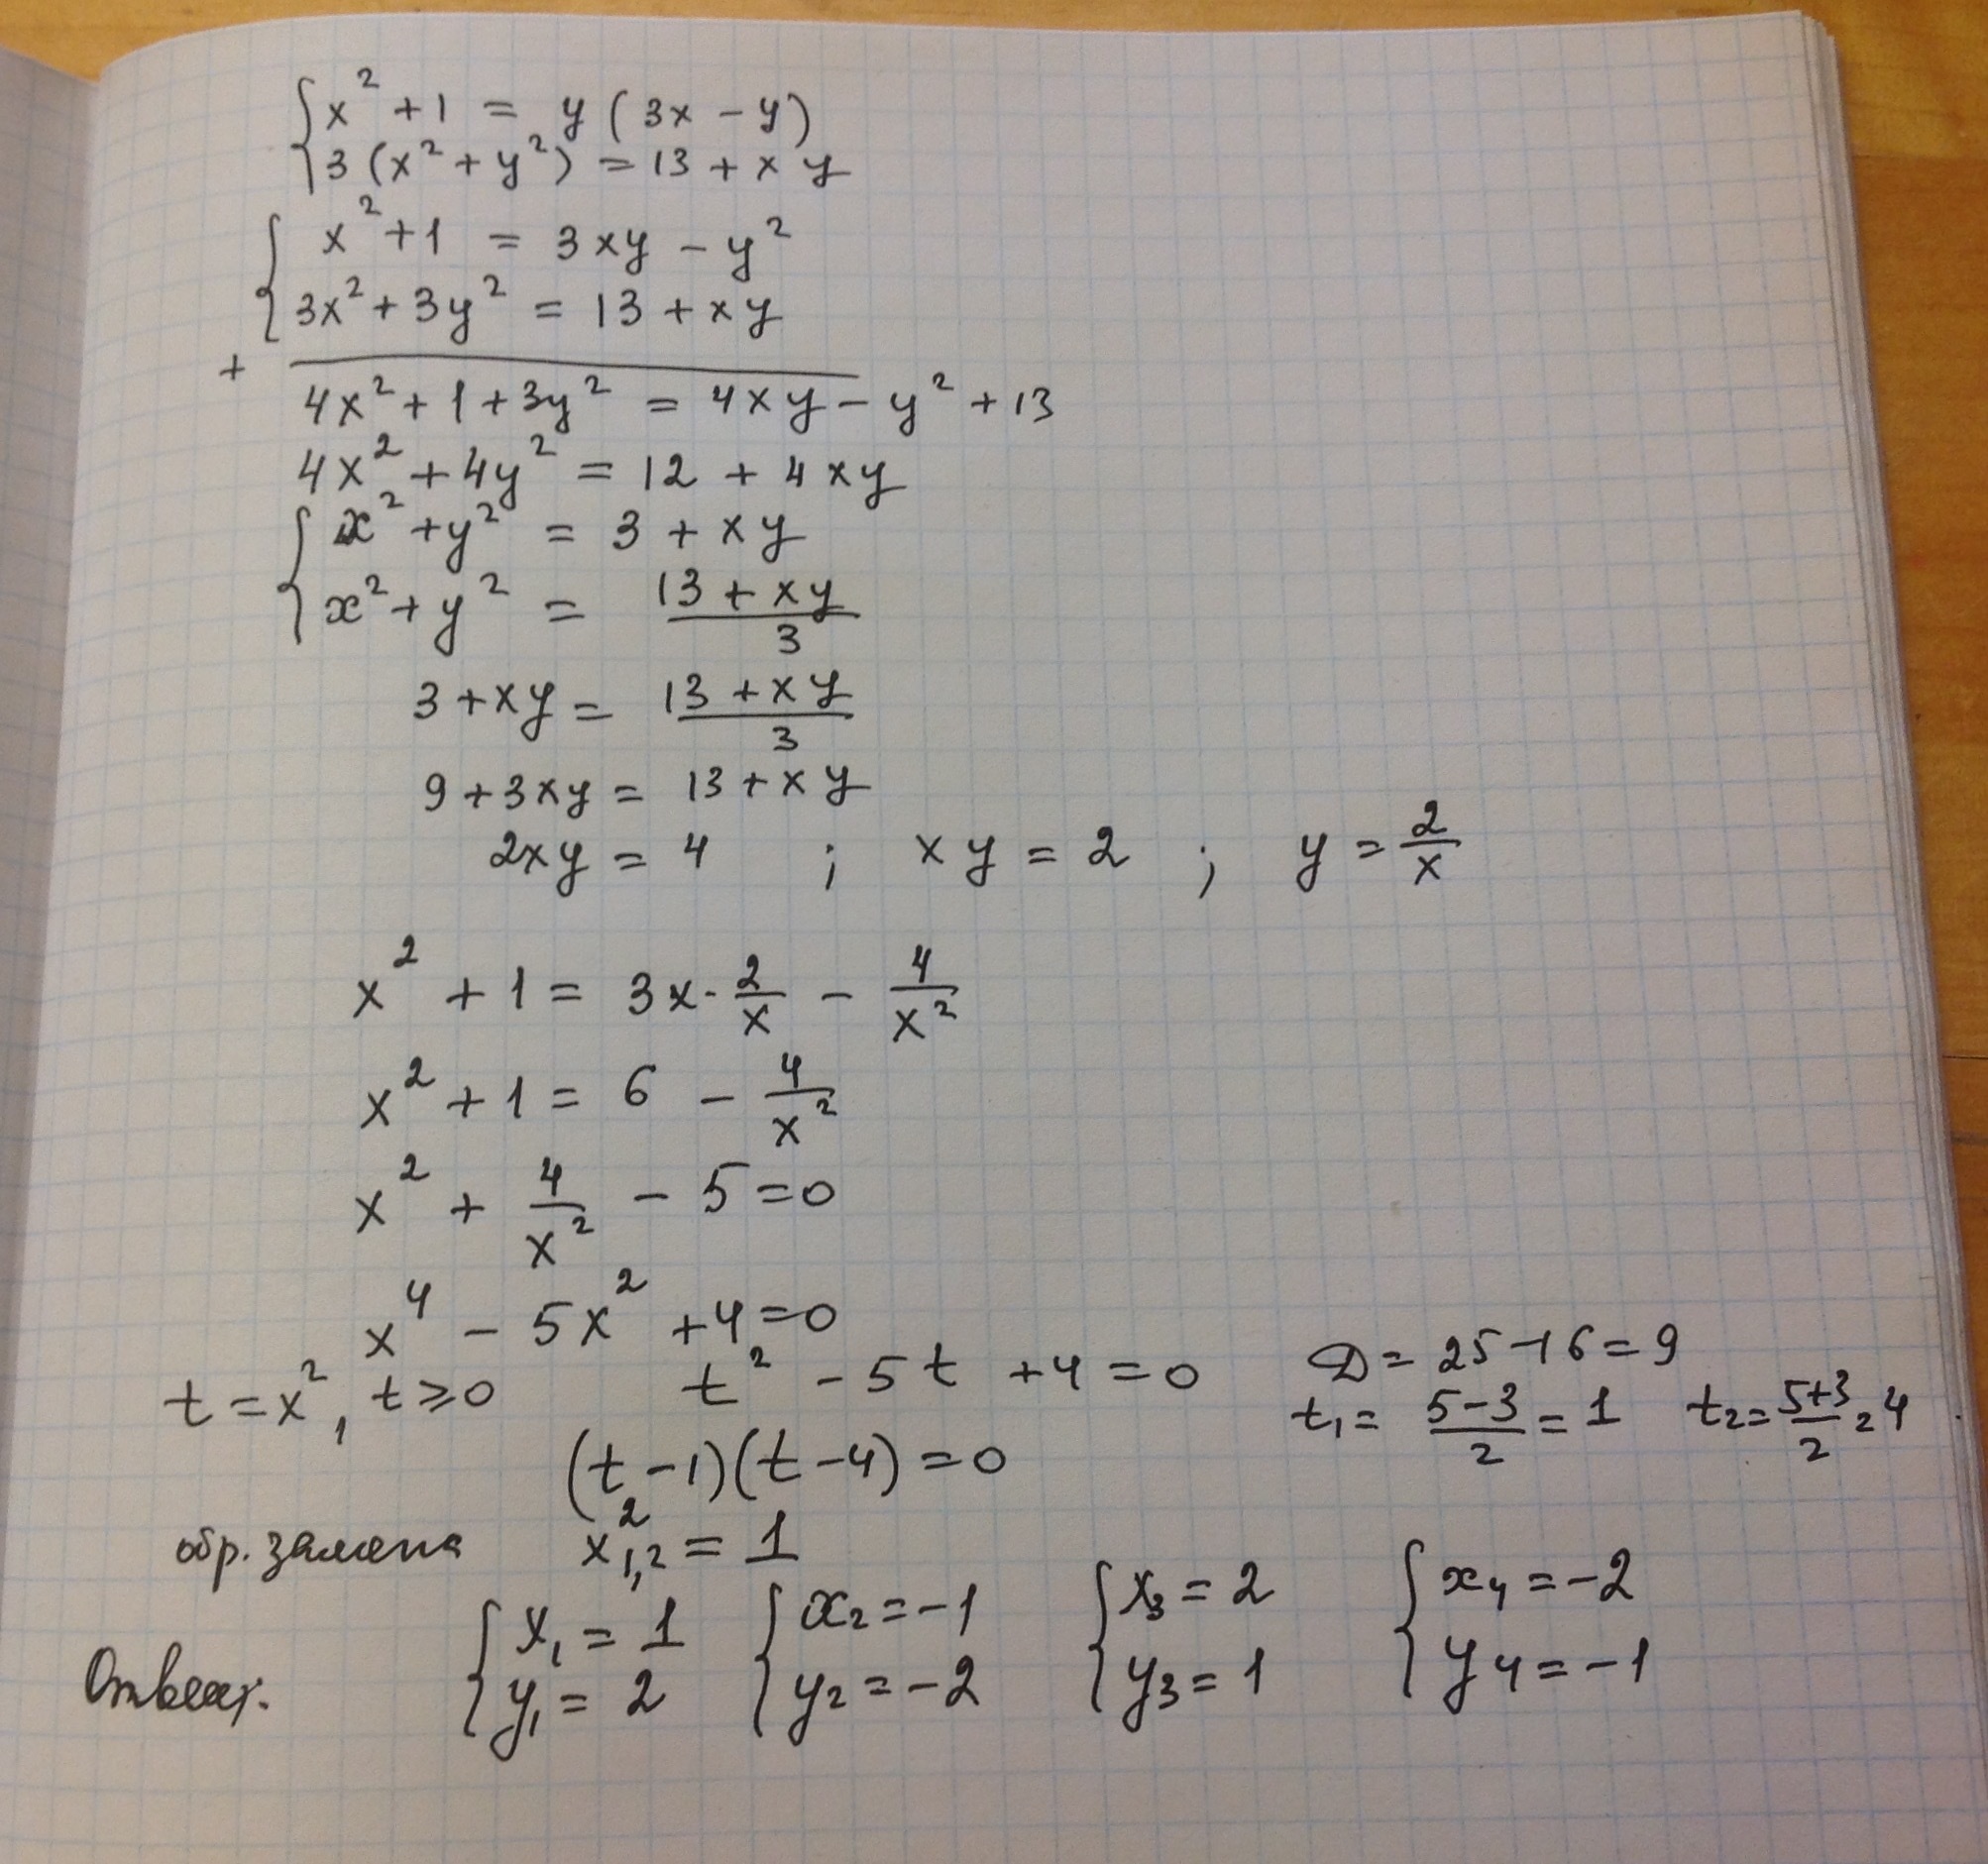 { x² + 1 = y (3x − y)
{ 3 (x² + y²) = 13 + xy
{ x² + 1 = 3xy − y²
{ 3x² + 3y² = 13 + xy
+
4x² + 1 + 3y² = 4xy − y² + 13
4x² + 4y² = 12 + 4xy
{ x² + y² = 3 + xy
{ x² + y² = (13 + xy)/3
3 + xy = (13 + xy)/3
9 + 3xy = 13 + xy
2xy = 4 ; xy = 2 ; y = 2/x
x² + 1 = 3x · 2/x − 4/x²
x² + 1 = 6 − 4/x²
x² + 4/x² − 5 = 0
x⁴ − 5x² + 4 = 0
t = x², t ⩾ 0 t² − 5t + 4 = 0 D = 25 − 16 = 9
t₁ = (5 − 3)/2 = 1 t₂ = (5 + 3)/2 = 4
(t − 1)(t − 4) = 0
обр. замена x²₁,₂ = 1
Ответ. { x₁ = 1 { x₂ = −1 { x₃ = 2 { x₄ = −2
{ y₁ = 2 { y₂ = −2 { y₃ = 1 { y₄ = −1